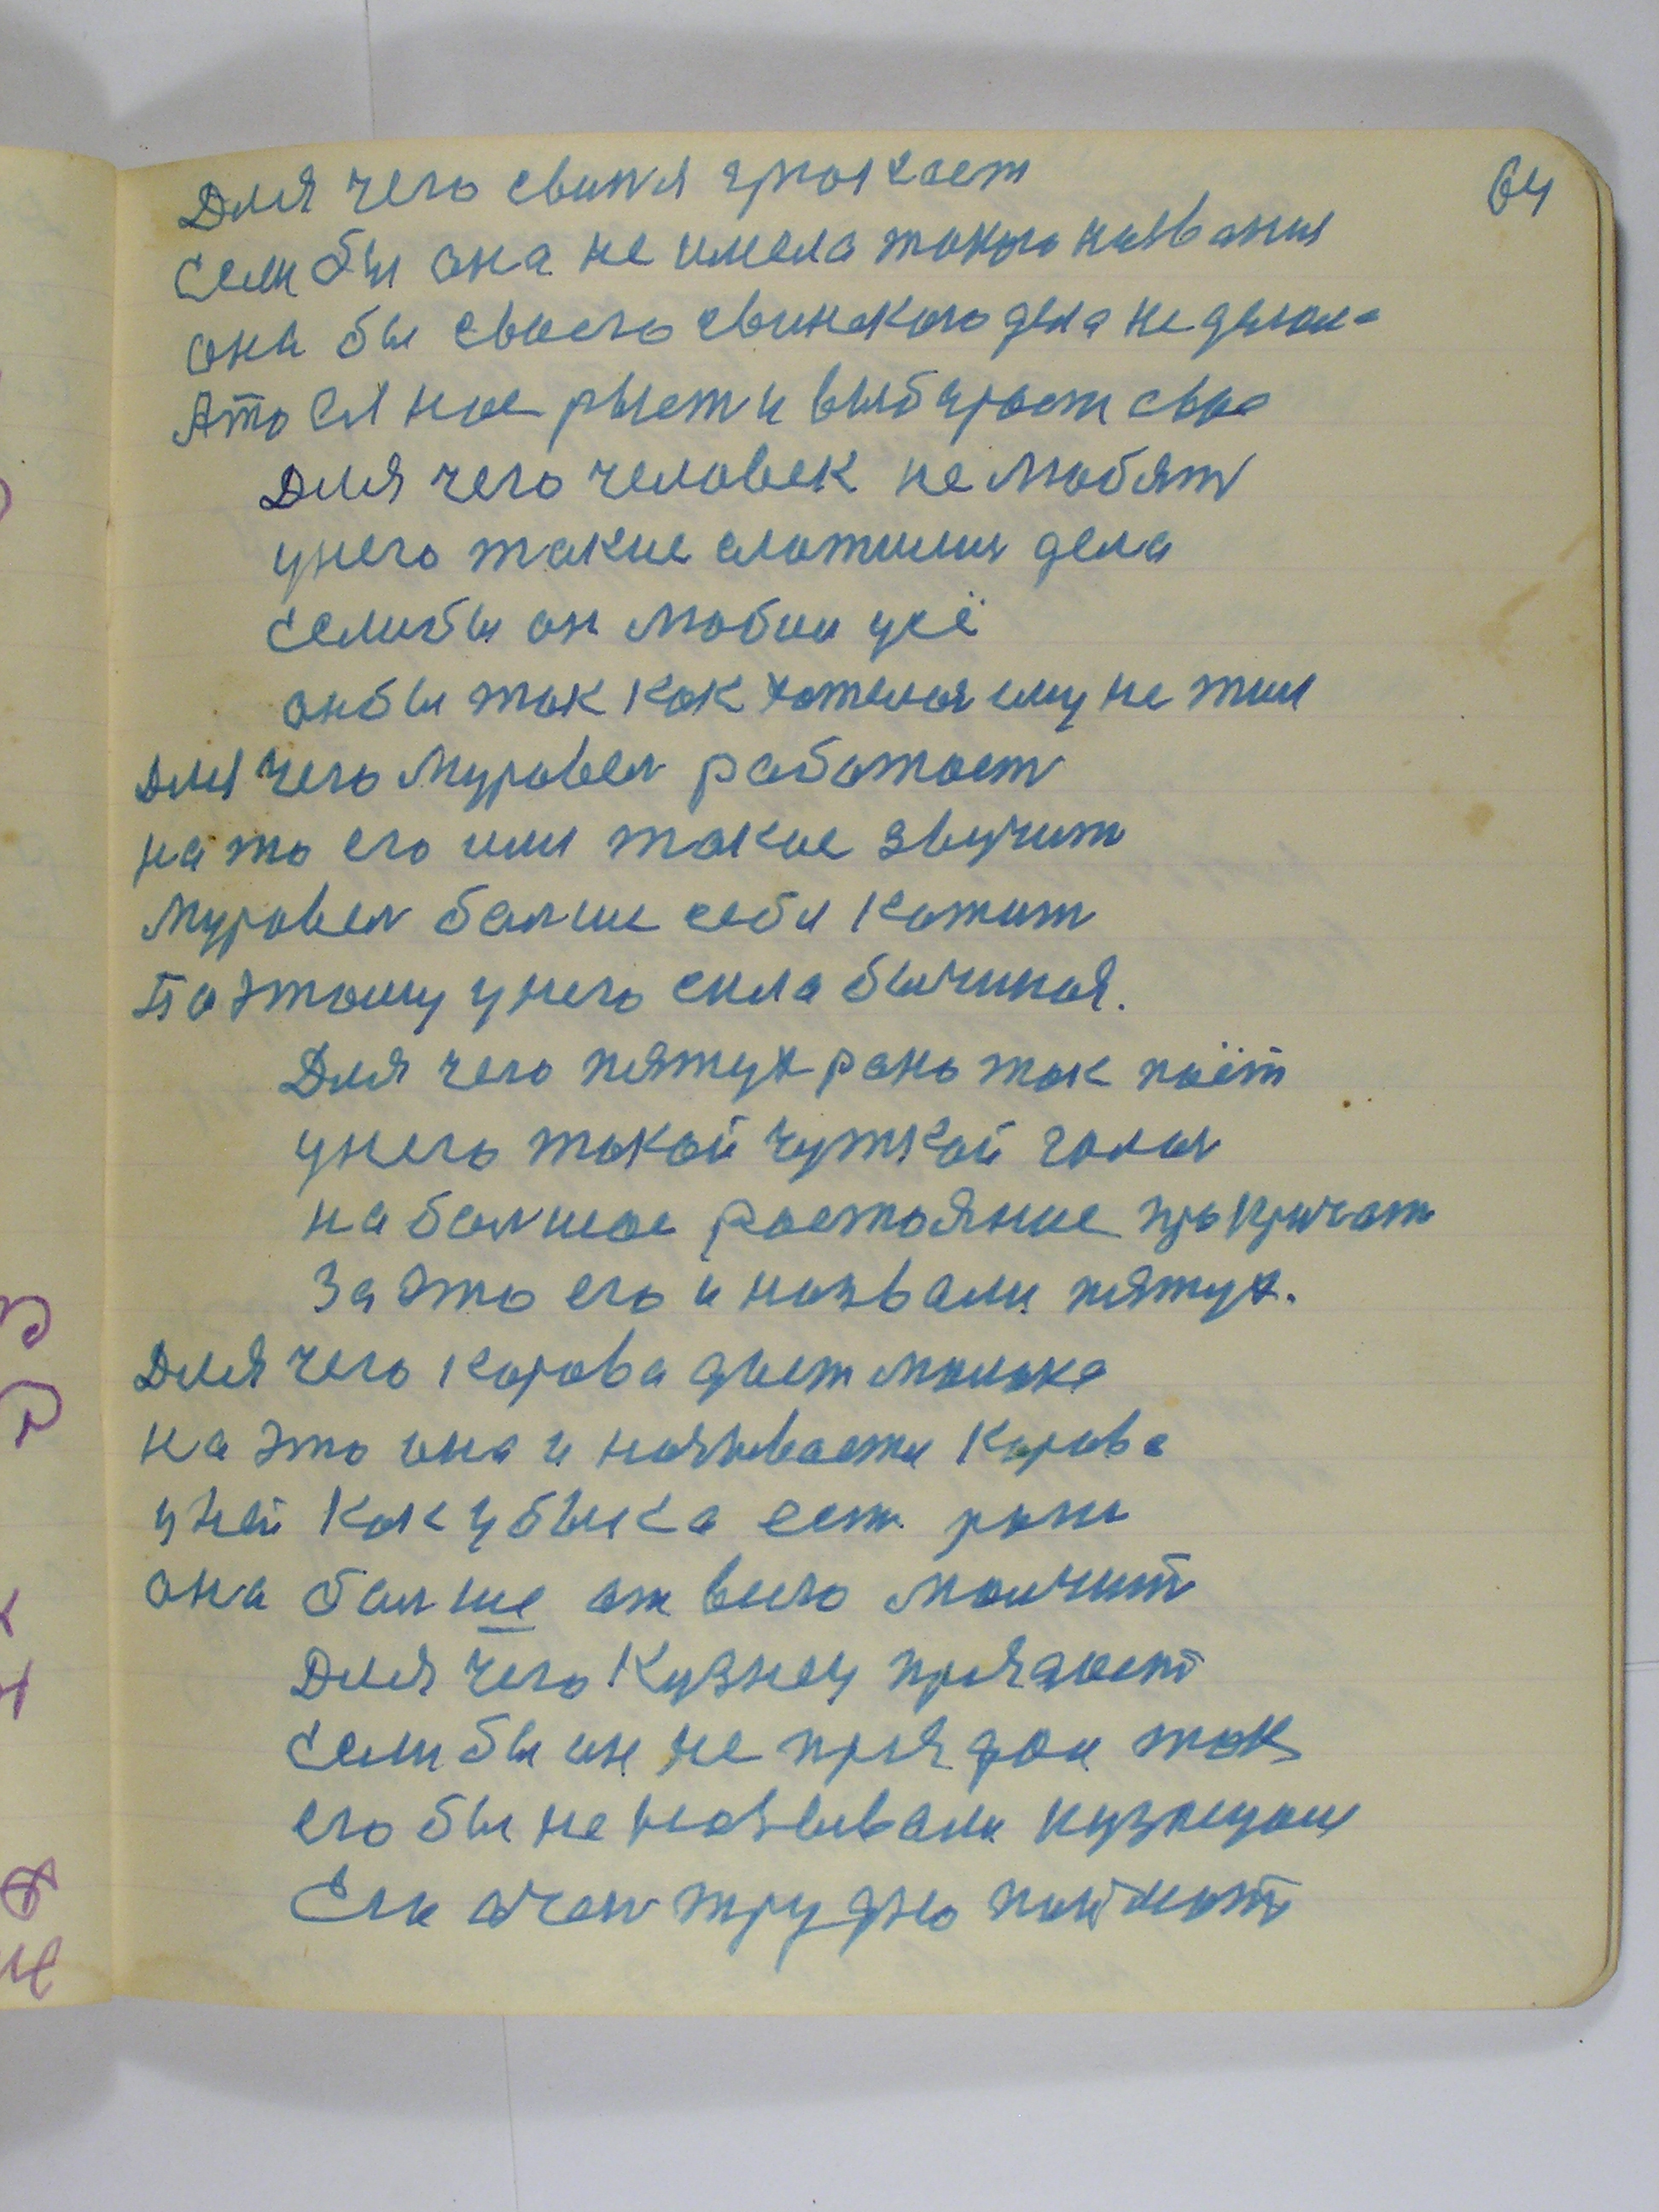 64
Для чего свиня хрюкает
Если бы она не имела такого названия
она бы своего свинского дела не делала
Ато ея нос рыет и выбирает свое
Для чего человек не любят
унего такие сложились дела
Если бы он любил усё
онбы так как хотелося ему не жил
Для чего Муравел работает
на то его имя такое звучит
Муравел балше себя катит
Паэтому унего сила бычиная.
Для чего пятух рано так паёт
унего такой чуткай голас
на балшое растояние прокричат
За это его и назвали пятух.
Для чего Карова дает малака
на это она и называется Карова
уней как у быка ест роги
она балше ат всего малчит
Для чего Кузнец прядает
Если бы он не прядал так
его бы не называли кузнецом
Ели очен трудно поймат